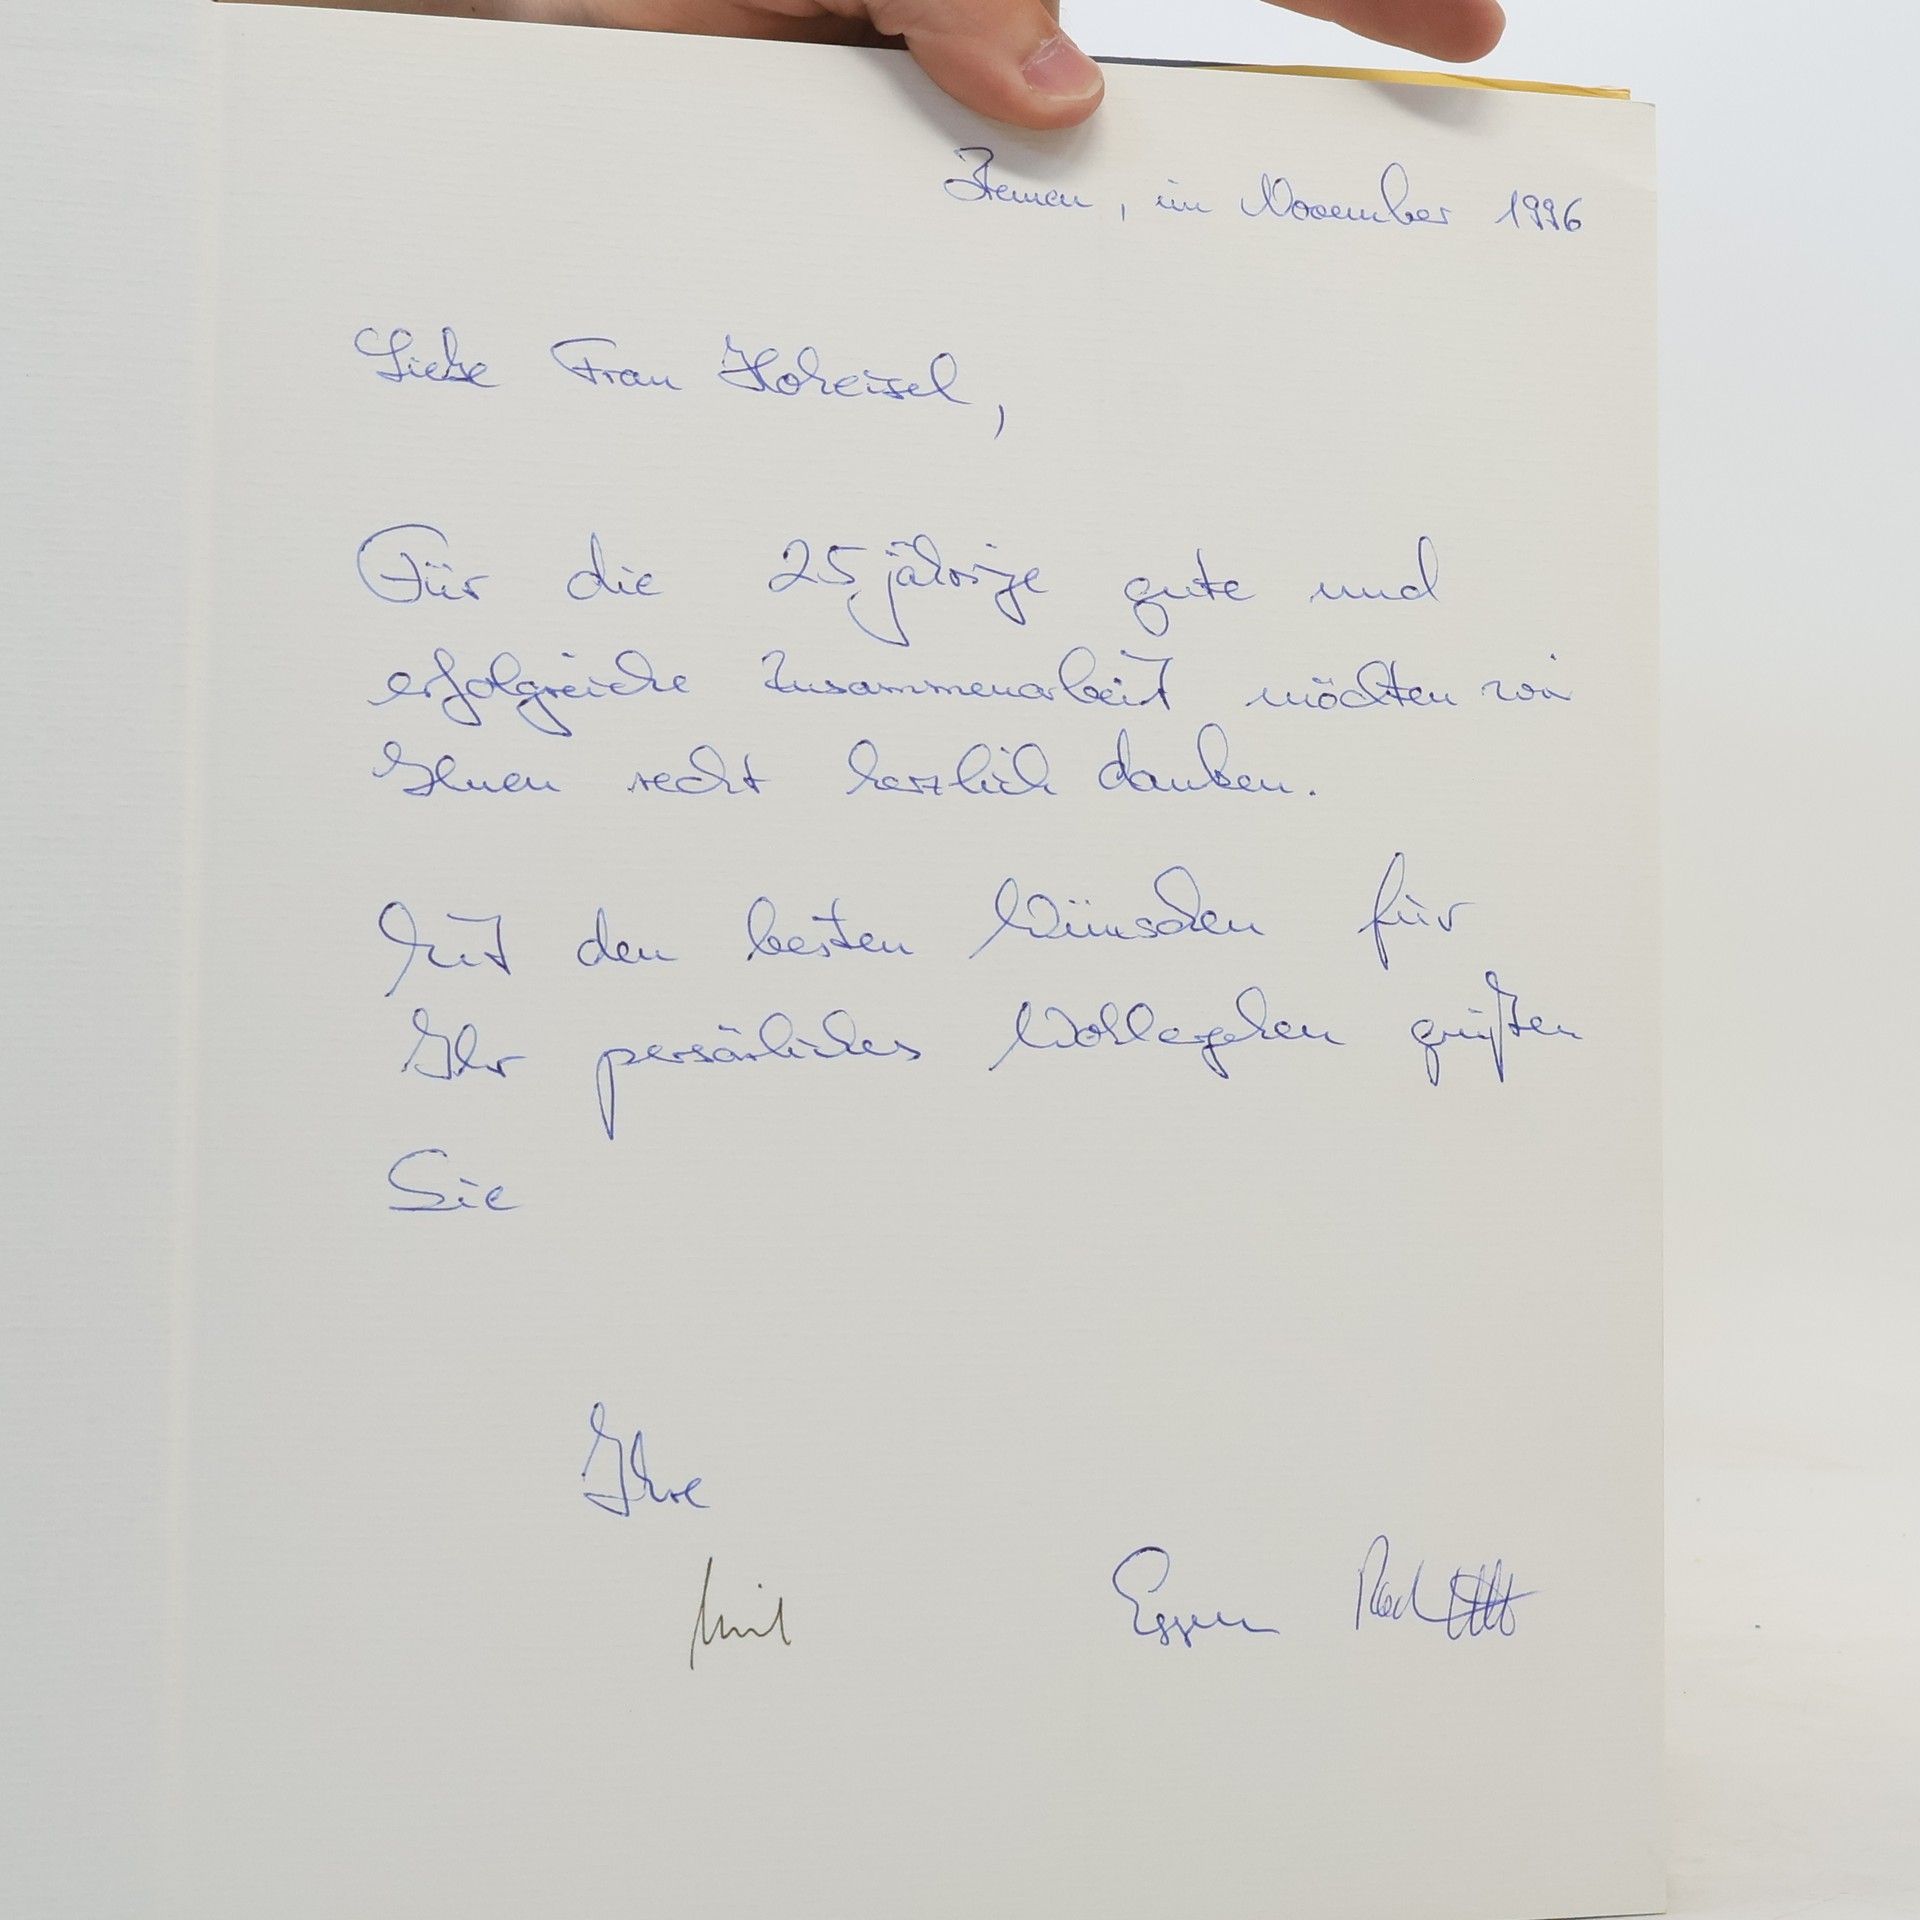 Bremen, im November 1996
Liebe Frau Hoheisel,
Für die 25jährige gute und
erfolgreiche Zusammenarbeit möchten wir
Ihnen recht herzlich danken.
Mit den besten Wünschen für
Ihr persönliches Wohlergehen grüßen
Sie
Ihre